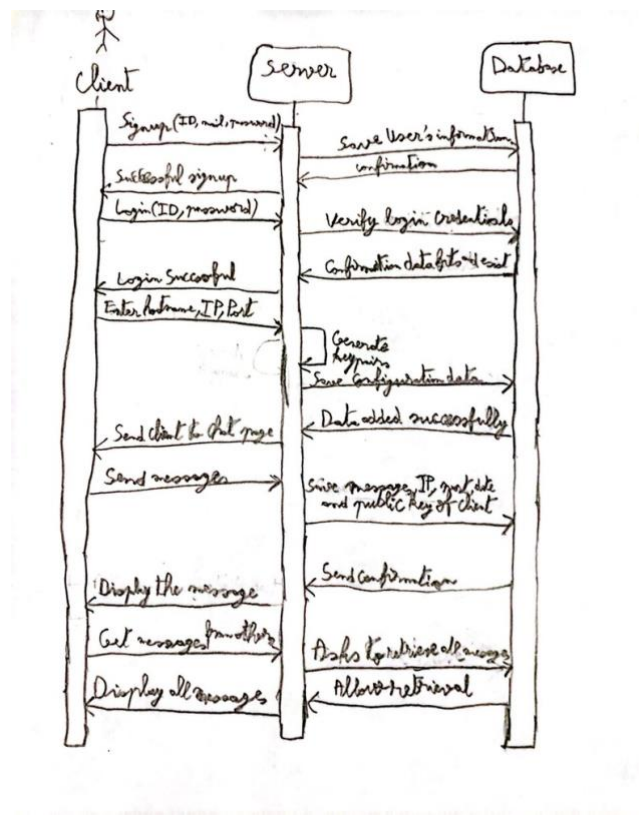 Client
Server
Database
Signup(ID, mail, password)
Save User's information
confirmation
Successful signup
Login(ID, password)
Verify login credentials
Confirmation data
Login Successful
Enter hostname, IP, Port
Generate
Keypairs
Save configuration data
Data added successfully
Send client to chat page
Send messages
Save message, IP, port, date
and public key of client
Send confirmation
Display the message
Get messages from others
Asks to retrieve all messages
Allows retrieval
Display all messages